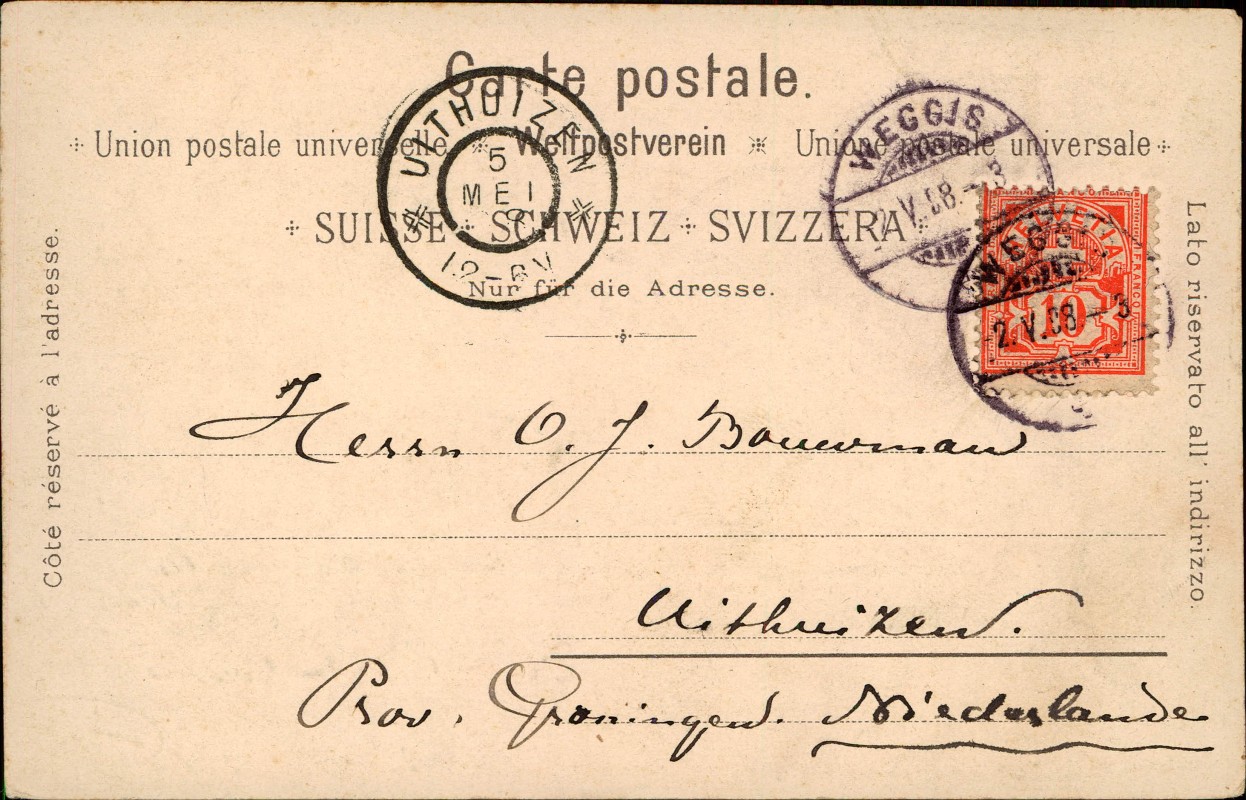 Carte postale.
Union postale universelle Weltpostverein Unione postale universale
SUISSE SCHWEIZ SVIZZERA
Nur für die Adresse.
Côté réservé à l'adresse.
Lato riservato all' indirizzo.
UITHUIZEN
5
MEI
8
WEGGIS
V.08.-3
HELVETIA
FRANCO
10
WEGGIS
2.V.08-3
Herrn O. J. Bouwman
Uithuizen.
Prov. Groningen. Niederlande